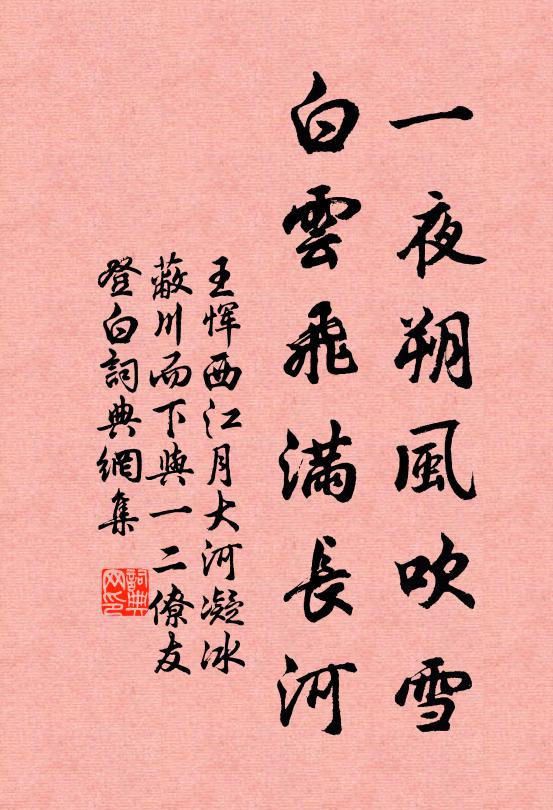 一夜朔風吹雪
白雲飛滿長河
王惲西江月大河凝冰
蔽川而下與一二僚友
登白詞典網集
詞典
网印